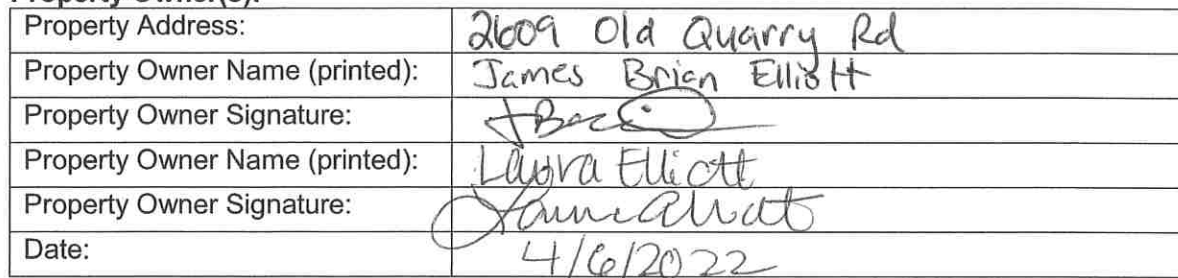 Property Owner(s):
Property Address: 2609 Old Quarry Rd
Property Owner Name (printed): James Brian Elliott
Property Owner Signature:
Property Owner Name (printed): Laura Elliott
Property Owner Signature: Laura Elliott
Date: 4/6/2022